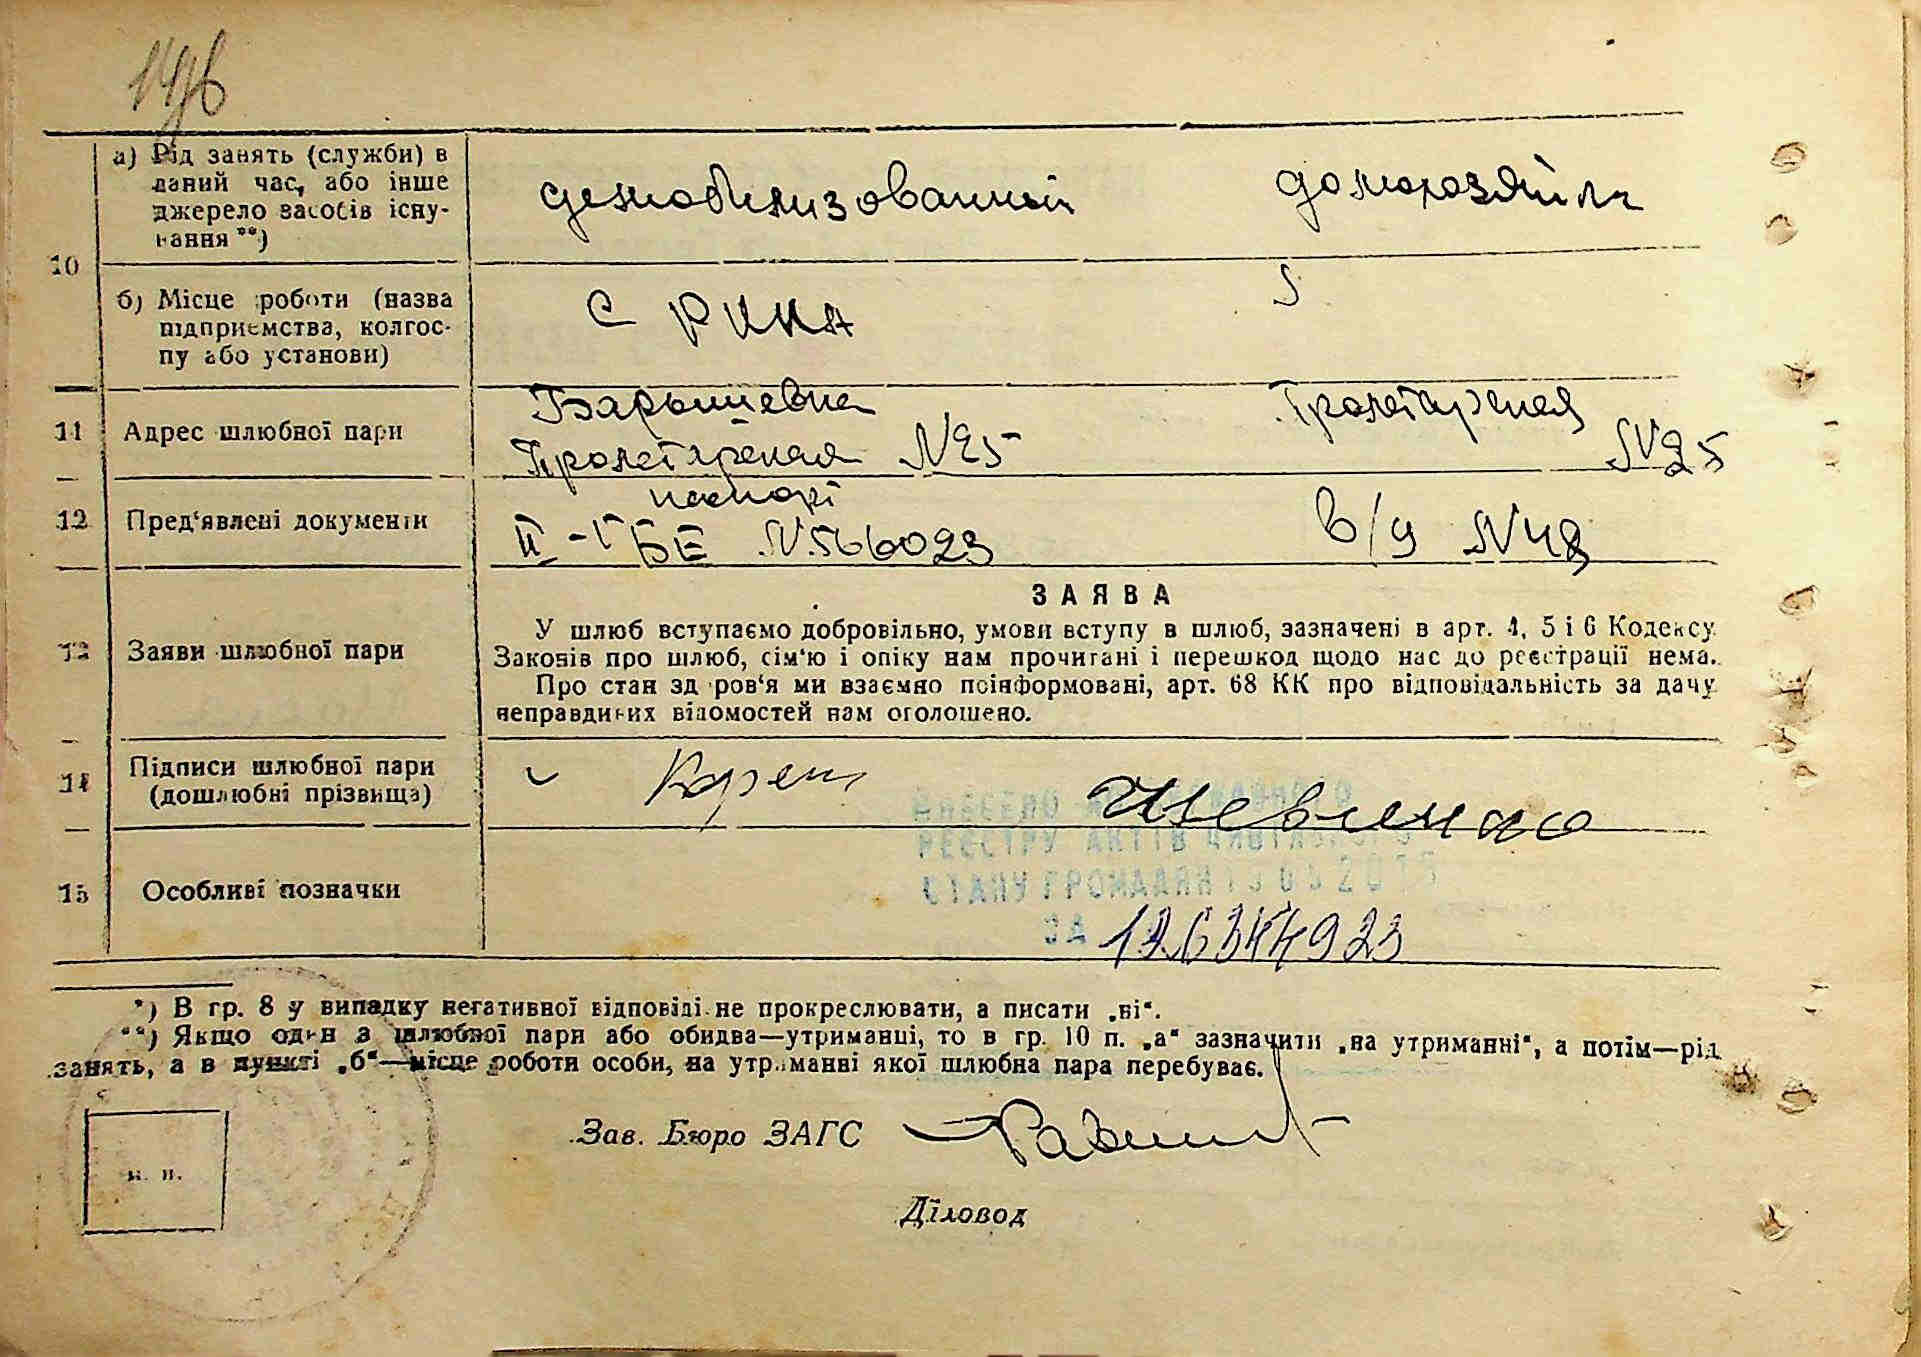 а) Рід занять (служби) в
даний час, або інше
джерело засобів існу-
вання **)
демобилизованный
домохозяйка
10
б) Місце роботи (назва
підприємства, колгос-
пу або установи)
с РККА
11
Адрес шлюбної пари
Барышевка
Пролетарская №25
Пролетарская
№25
12
Пред'явлені документи
паспорт
БЕ №566023
в/у №48
13
Заяви шлюбної пари
ЗАЯВА
У шлюб вступаємо добровільно, умови вступу в шлюб, зазначені в арт. 4, 5 і 6 Кодексу
Законів про шлюб, сім'ю і опіку нам прочитані і перешкод щодо нас до реєстрації нема.
Про стан здоров'я ми взаємно поінформовані, арт. 68 КК про відповідальність за дачу
неправдивих відомостей нам оголошено.
14
Підписи шлюбної пари
(дошлюбні прізвища)
Шевченко
15
Особливі позначки
ВНЕСЕНО ДО ДЕРЖАВНОГО
РЕЄСТРУ АКТІВ ЦИВІЛЬНОГО
СТАНУ ГРОМАДЯН
ЗА
*) В гр. 8 у випадку негативної відповіді не прокреслювати, а писати „ні“.
**) Якщо один з шлюбної пари або обидва—утриманці, то в гр. 10 п. „а“ зазначити „на утриманні“, а потім—рід
занять, а в пункті „б“—місце роботи особи, на утриманні якої шлюбна пара перебуває.
м. п.
Зав. Бюро ЗАГС
Діловод